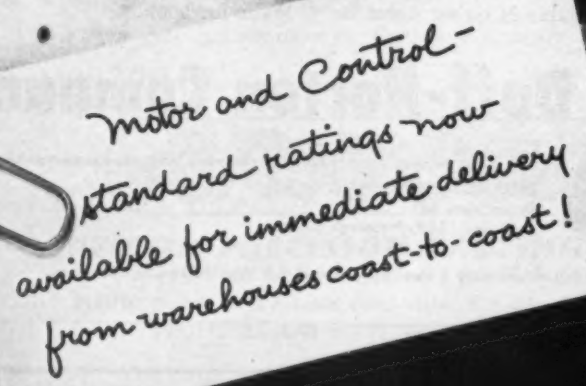 Motor and Control -
standard ratings now
available for immediate delivery
from warehouses coast-to-coast!